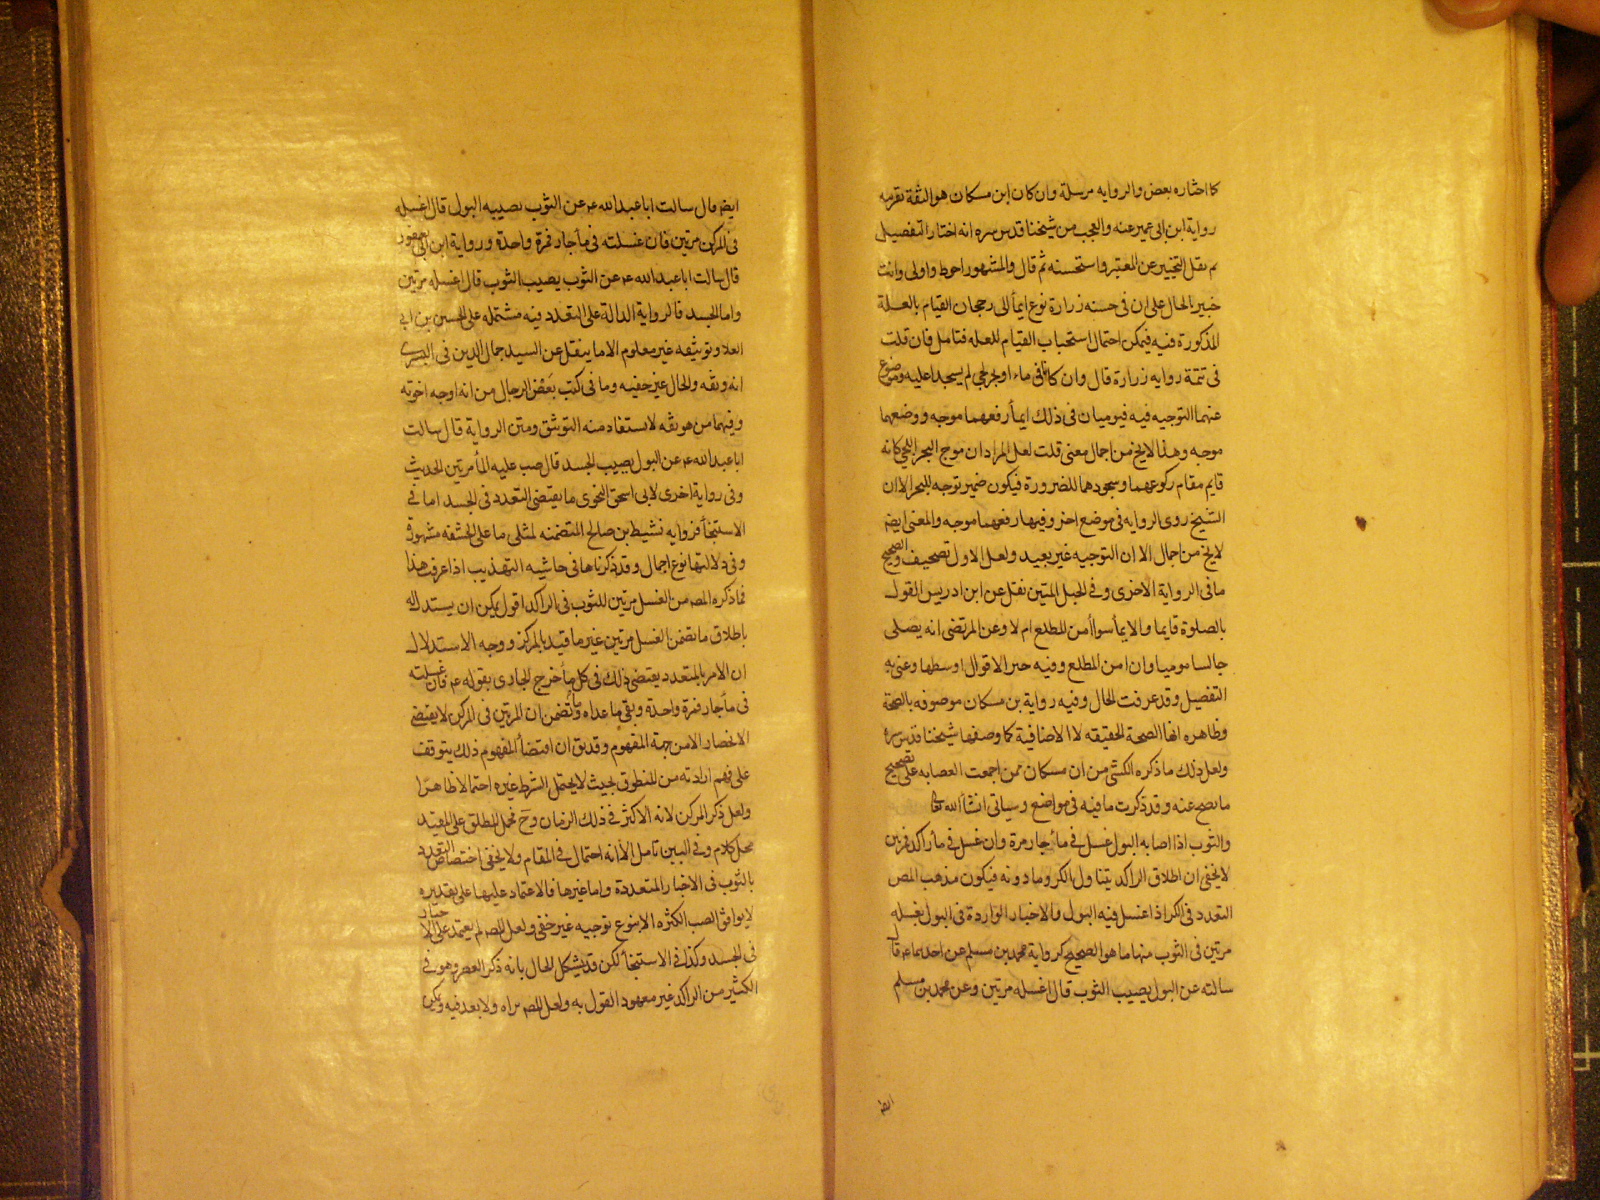 كما اختاره بعض والرواية مرسلة وان كان ابن مسكان هو الثقة لقرينة
رواية ابن ابي عمير عنه والعجب من شيخنا قدس سره انه اختار التفصيل
ثم نقل التخيير عن المعتبر واستحسنه ثم قال والمشهور احوط واولى وانت
خبير بالحال على ان في حسنه زرارة نوع ايمأ الى رجحان القيام بالعلة
المذكورة فيه فيمكن احتمال استحباب القيام للعله فتامل فان قلت
في تتمة روايه زرارة قال وان كانا في ماء او بحر لجي لم يسجدا عليه وموضوع
عنهما التوجيه فيه فيوميان في ذلك ايمأ رفعهما موجه ووضعهما
موجه وهذا لا يخ من اجمال معنى قلت لعل المراد ان موج البحر اللجي كانه
قايم مقام ركوعهما وسجودهما للضرورة فيكون ضمير توجه للبحر الا ان
الشيخ روى الروايه في موضع اخر وفيها رفعهما موجه والمعنى ايضم
لا يخ من اجمال الا ان التوجيه غير بعيد ولعل الاول تصحيف والصحيح
ما في الرواية الاخرى وفي الحبل المتين نقل عن ابن ادريس القول
بالصلوة قايما والايمأ سواأ من المطلع ام لا وعن المرتضى انه يصلى
جالسا موميا وان امن المطلع وفيه خير الاقوال اوسطها وعنى به
التفصيل وقد عرفت الحال وفيه رواية بن مسكان موصوفه بالصحة
وظاهره انها الصحة الحقيقه لا الاضافية كما وصفها شيخنا قدس سره
ولعل ذلك ما ذكره الكشي من ان مسكان ممن اجمعت العصابه على تصحيح
ما يصح عنه وقد ذكرت ما فيه في مواضع وسياتى انشأ الله تعا
والثوب اذا اصابه البول غسل في مأ جار مرة وان غسل في مأ راكد فمرتين
لا يخفى ان اطلاق الراكد يتناول الكر وما دونه فيكون مذهب المص
التعدد في الكر اذا غسل فيه البول والاخبار الواردة في البول بغسله
مرتين في الثوب منها ما هو الصحيح كرواية محمد بن مسلم عن احدهما ع قا
سالته عن البول يصيب الثوب قال اغسله مرتين وعن محمد بن مسلم
ايضم قال سالت ابا عبد الله ع عن الثوب يصيبه البول قال اغسله
في المركن مرتين فان غسلته في مأ جار فمرة واحدة ورواية ابن ابي يعفور
قال سالت ابا عبد الله ع عن الثوب يصيب الثوب قال اغسله مرتين
واما الجسد فالرواية الدالة على التعدد فيه مشتمله على الحسين بن ابي
العلا وتوثيقه غير معلوم الا ما ينقل عن السيد جمال الدين في البشرى
انه وثقه والحال غير خفيه وما في كتب بعض الرجال من انه اوجه اخوته
وفيهما من هو ثقه لا يستفاد منه التوثيق ومتن الرواية قال سالت
ابا عبد الله ع عن البول يصيب الجسد قال صب عليه المأ مرتين الحديث
وفي رواية اخرى لابى اسحق النحوى ما يقتضى التعدد في الجسد اما في
الاستنجأ فروايه نشيط بن صالح المتضمنه لمثلى ما على الحشفه مشهورة
وفي دلالتها نوع اجمال وقد ذكرناها في حاشيه التهذيب اذا عرفت هذا
فما ذكره المص من الغسل مرتين للثوب في الراكد اقول يمكن ان يستدل له
باطلاق ما تضمن الغسل مرتين غير ما قيد بالمركن ووجه الاستدلال
ان الامر بالمتعدد يقتضى ذلك في كل مأ خرج الجارى بقوله ع فان غسلته
في مأ جار فمرة واحدة وبقى ما عداه وما تضمن ان المرتين في المركن لا يقتضي
الانحصار الا من جهة المفهوم وقد يق ان اقتضأ المفهوم ذلك يتوقف
على فهم ارادته من المنطوق بحيث لا يحتمل الشرط غيره احتمالا ظاهرا
ولعل ذكر المركن لانه الاكثر في ذلك الزمان وح محمل المطلق على المقيد
محل كلام وفي البين تامل الا أنه احتمال في المقام ولا يخفى اختصاص التعدد
بالثوب في الاخبار المتعددة واما غيرها فالاعتماد عليها على تقديره
لا يوافق الصب الكثره الا بنوع توجيه غير خفى ولعل المص لم يعتمد على الاخبار
في الجسد وكذا في الاستنجأ لكن قد يشكل الحال بانه ذكر العصر وهو في
الكثير من الراكد غير معهود القول به ولعل المص يراه ولا بعد فيه ويمكن